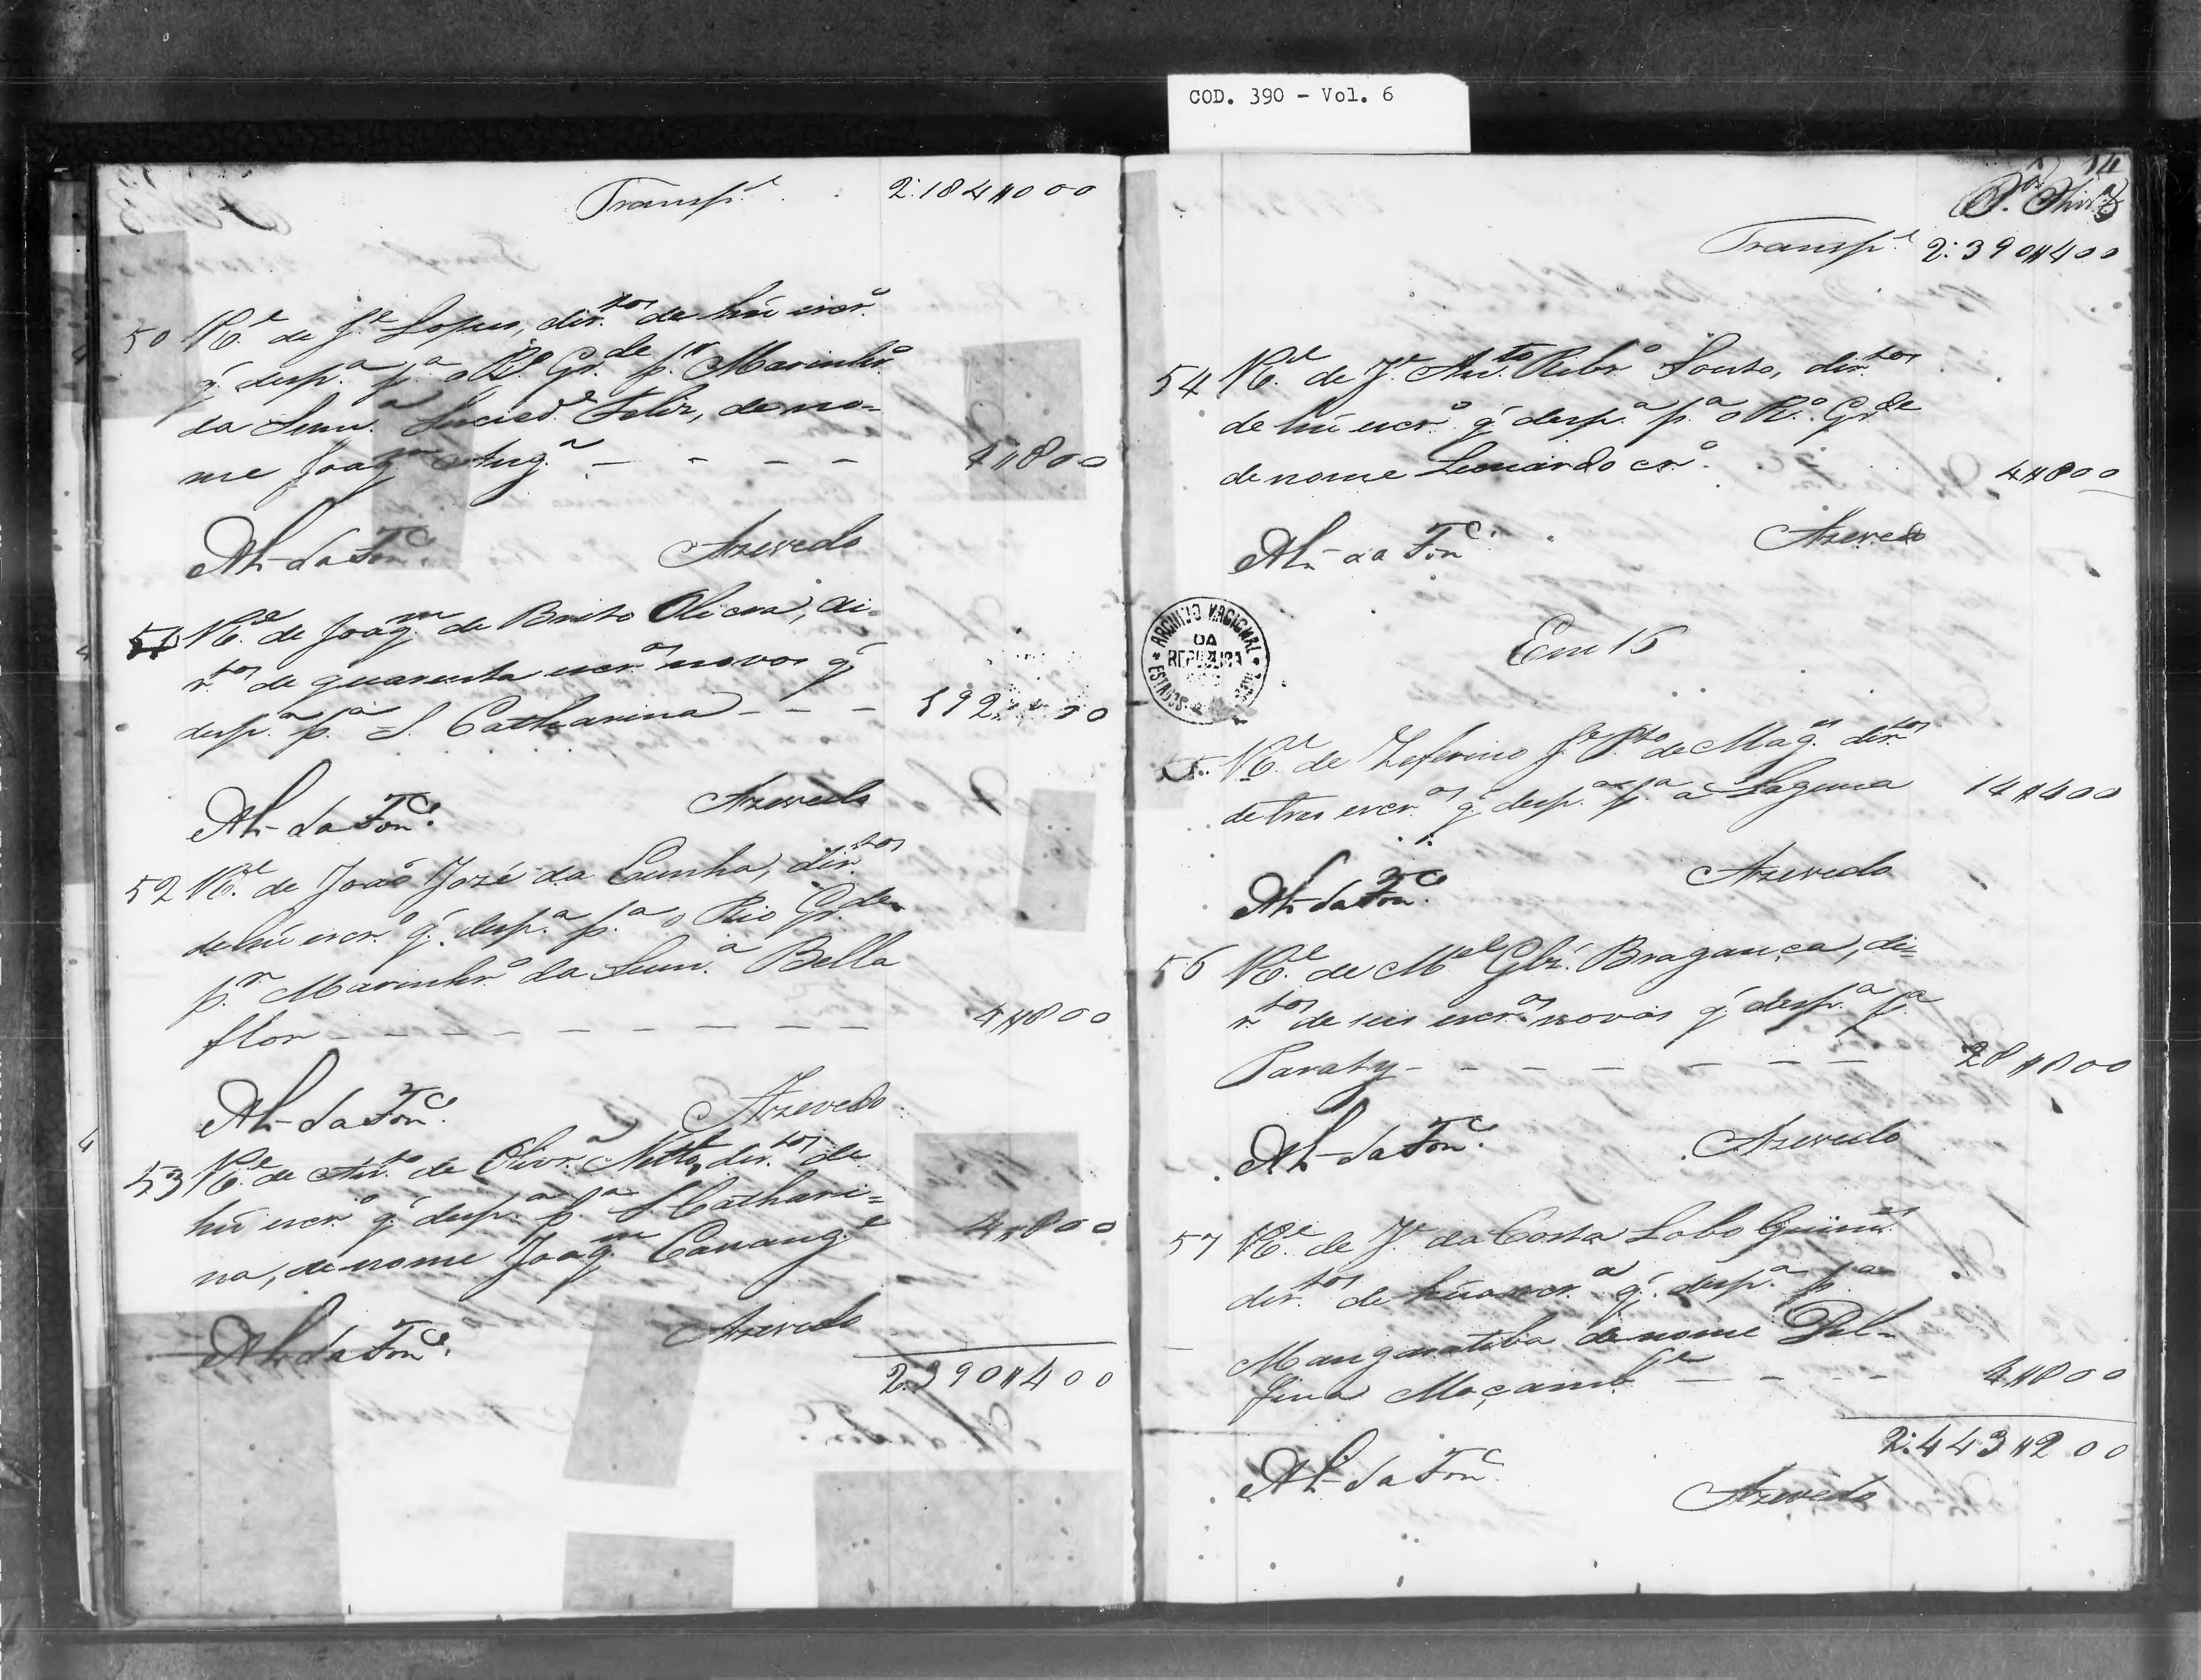 COD. 390 - Vol. 6
Transp.e 2:184$000
50 R.e de J.e Lopes, dir.tos de hũ escr.o
q' desp.a p.a o R.o Gr.de p.r Marinhr.o
da Sum.a Socied.e Feliz, de no=
me Joaq.m Ang.a 4$800
Al- da Fon.ca Azevedo
51 R.e de Joaq.m de Brito Olivra, di=
r.tos de quarenta escr.os novos q'
desp.a p.a S. Catharina 192$000
Al- da Fon.ca Azevedo
52 R.e de João José da Cunha, dir.tos
de hũ escr.o q' desp.a p.a o Rio Gr.de
p.r Marinhr.o da Sum.a Bella
flor 4$800
Al- da Fon.ca Azevedo
53 R.e de Ant.o de Olivr.a Netto, dir.tos de
hũ escr.o q' desp.a p.a S. Cathari=
na, de nome Joaq.m Cassang.e 4$800
Al- da Fon.ca Azevedo
2:390$400
54
Transp.e 2:390$400
54 R.e de J.e Ant.o Ribr.o Souto, dir.tos
de hũ escr.o q' desp.a p.a o R.o Gr.de
de nome Leonardo cr.o 4$800
Al- da Fon.ca Azevedo
ARCHIVO NACIONAL
DA
REPUBLICA
ESTADOS
Em 16
55 R.e de Zeferino J.e P.to de Mag.es dir.tos
de tres escr.os q' desp.a p.a a Laguna 14$400
Al- da Fon.ca Azevedo
56 R.e de M.el Glz.' Bragança, di=
r.tos de seis escr.os novos q' desp.a p.a
Paraty 28$800
Al- da Fon.ca Azevedo
57 R.e de J.e da Costa Lobo Guim.es
dir.tos de hũa escr.a q' desp.a p.a
Mangaratiba de nome Del=
fina Moçamb.e 4$800
2:443$200
Al- da Fon.ca Azevedo